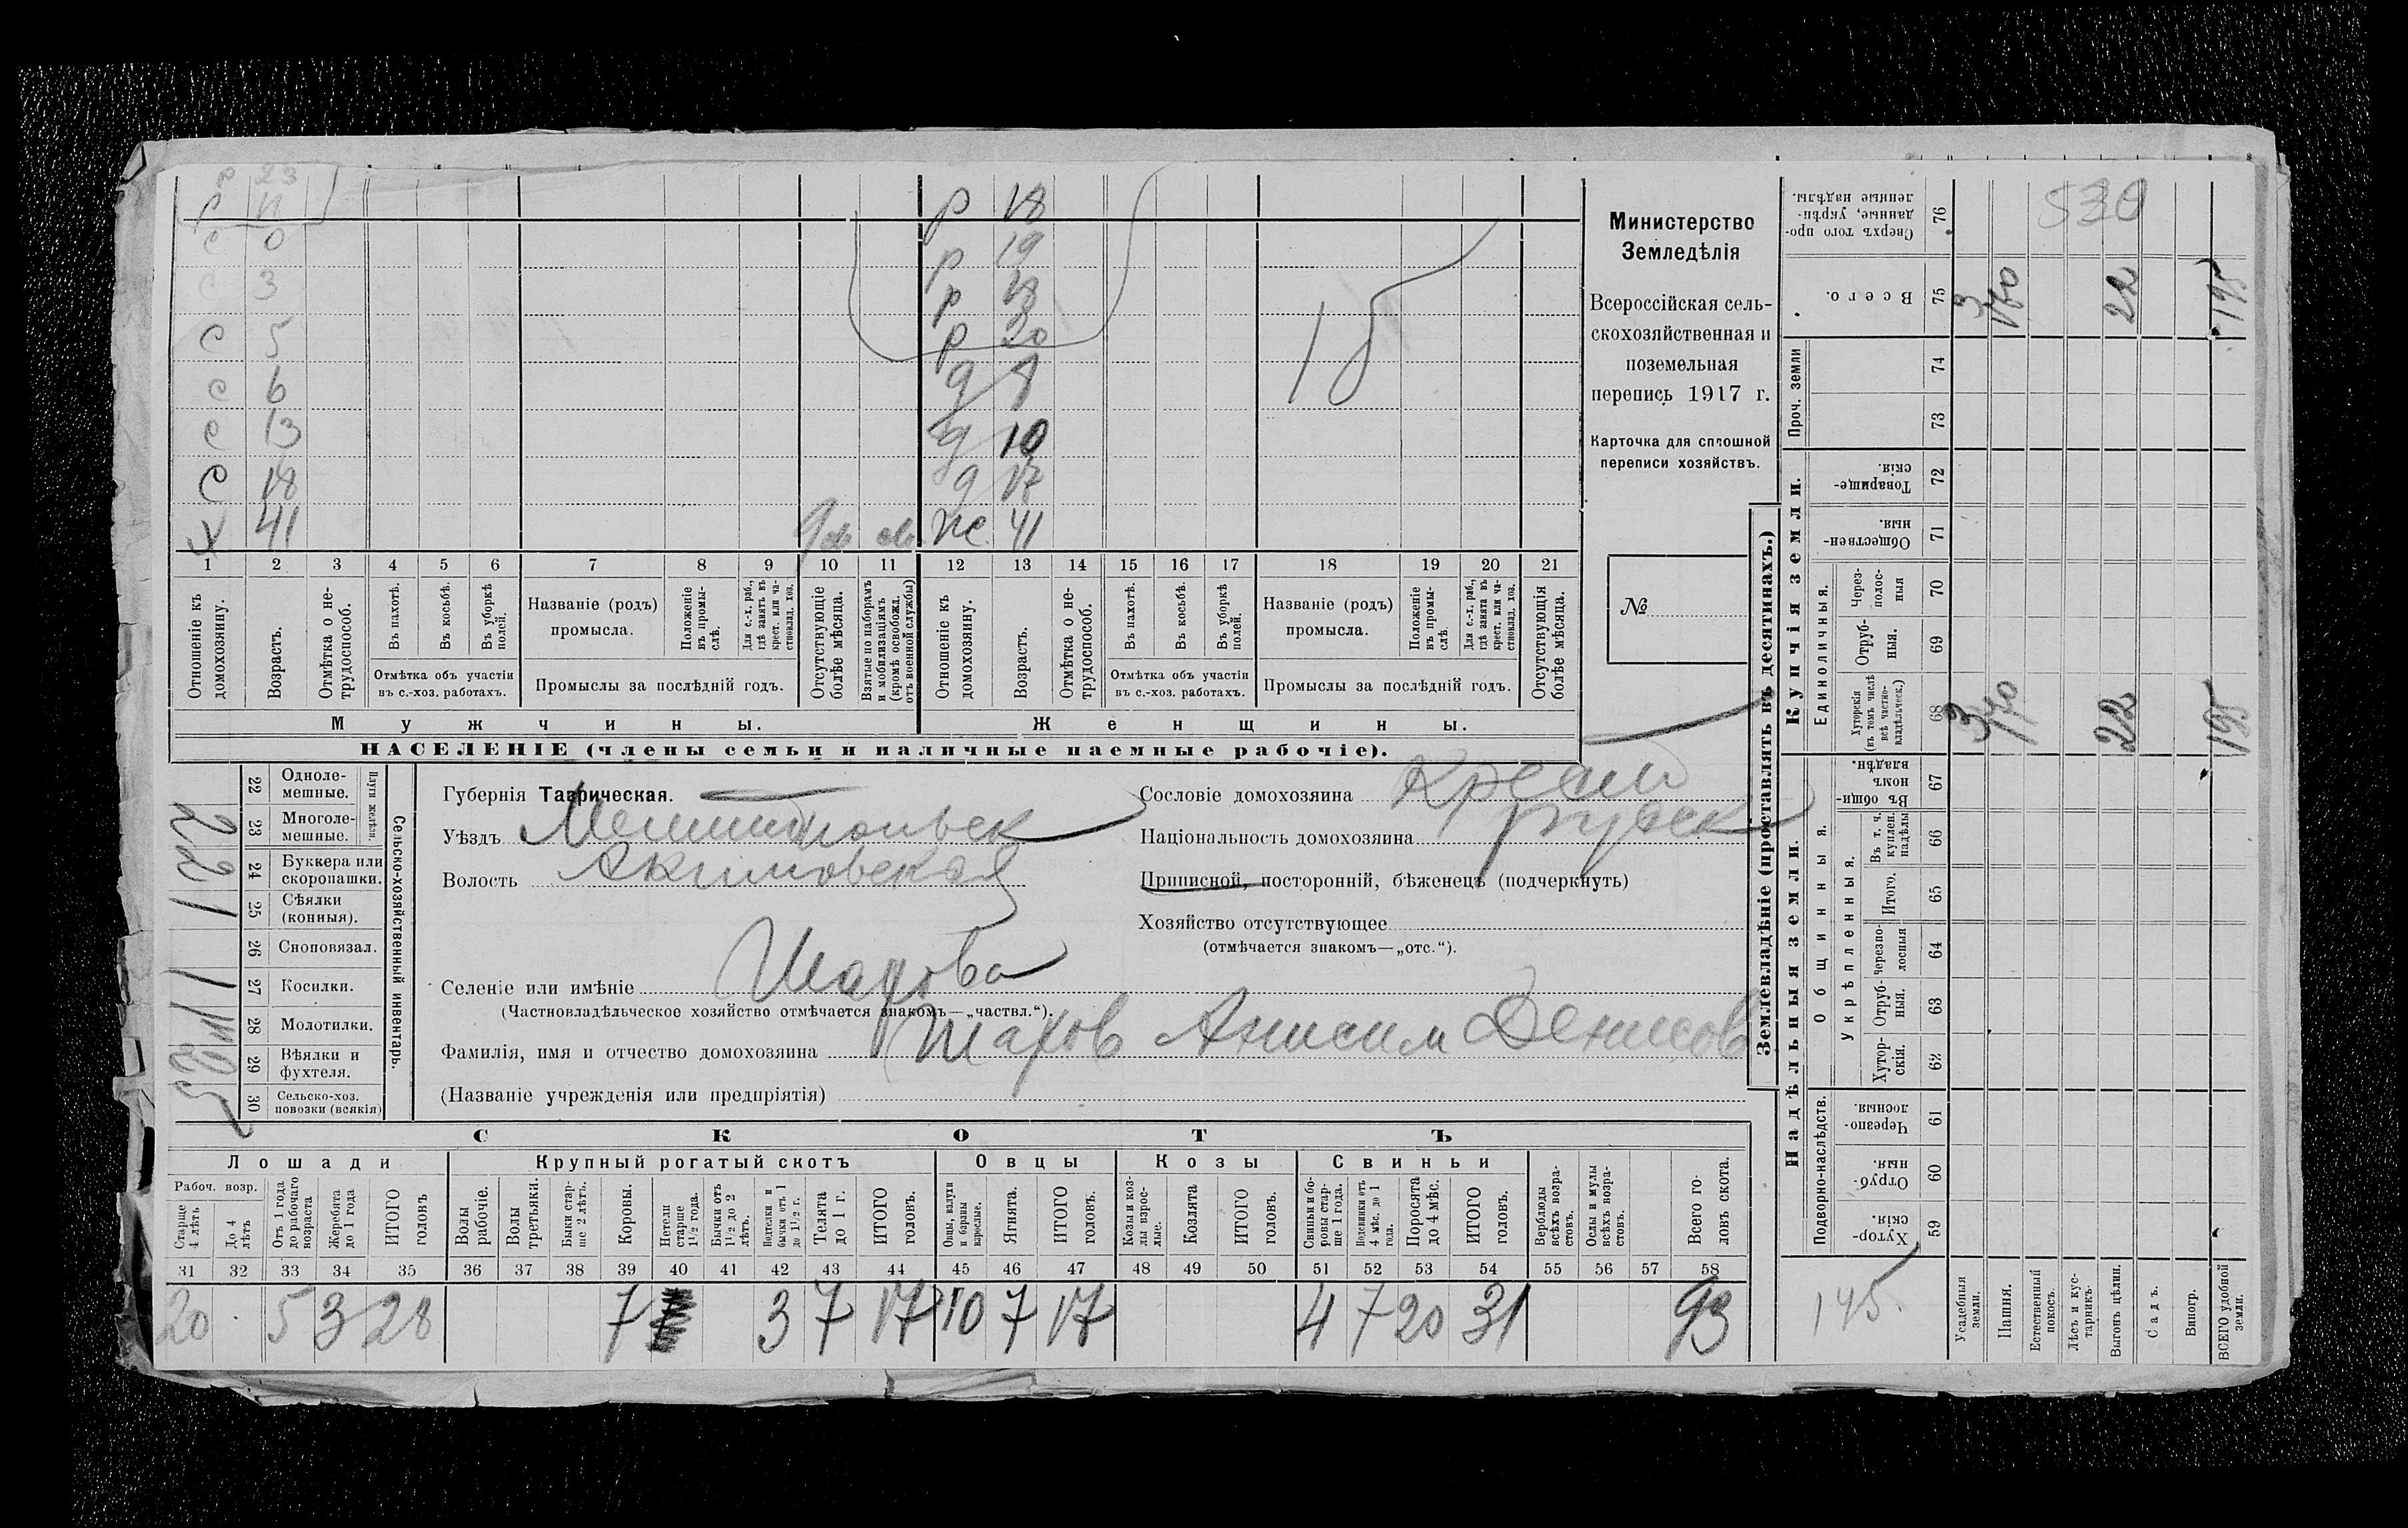 р 23
р 17
с 0
с 3
с 5
с 6
с 13
с 18
х 41
р 18
р 19
р 18
р 20
д 8
д 10
д 17
же 41
15
1 2 3 4 5 6 7 8 9 10 11 12 13 14 15 16 17 18 19 20 21
Отношеніе къ домохозяину.
Возрастъ.
Отмѣтка о не-трудоспособ.
Въ пахотѣ.
Въ косьбѣ.
Въ уборкѣ полей.
Отмѣтка объ участіи въ с.-хоз. работахъ.
Названіе (родъ) промысла.
Положеніе въ промы-слѣ.
Для с.-х. раб., гдѣ занятъ въ крест. или ча-стновлад. хоз.
Промыслы за послѣдній годъ.
Отсутствующіе болѣе мѣсяца.
Взятые по наборамъ и мобилизаціямъ (кромѣ освобожд. отъ военной службы)
Отношеніе къ домохозяину.
Возрастъ.
Отмѣтка о не-трудоспособ.
Въ пахотѣ.
Въ косьбѣ.
Въ уборкѣ полей.
Отмѣтка объ участіи въ с.-хоз. работахъ.
Названіе (родъ) промысла.
Положеніе въ промы-слѣ
Для с.-х. раб., гдѣ занята въ крест. или ча-стновлад. хоз.
Промыслы за послѣдній годъ.
Отсутствующія болѣе мѣсяца.
Мужчины.
Женщины.
НАСЕЛЕНІЕ (члены семьи и наличные наемные рабочіе).
Министерство
Земледѣлія
Всероссійская сель-
скохозяйственная и
поземельная
перепись 1917 г.
Карточка для сплошной
переписи хозяйствъ.
№
22 Одноле-мешные.
23 Многоле-мешные.
Плуги желѣзн.
24 Буккера или скоропашки.
25 Сѣялки (конныя).
26 Сноповязал.
27 Косилки.
28 Молотилки.
29 Вѣялки и фухтеля.
30 Сельско-хоз. повозки (всякія)
Сельско-хозяйственный инвентарь.
2 2 1
Губернія Таврическая.
Уѣздъ Мелитопольск
Волость Акимовская
Селеніе или имѣніе Шарова
(Частновладѣльческое хозяйство отмѣчается знакомъ—„частвл.“).
Фамилія, имя и отчество домохозяина Шаров Анисим Денисов
(Названіе учрежденія или предпріятія)
Сословіе домохозяина Крест
Національность домохозяина русск
Приписной, посторонній, бѣженецъ (подчеркнуть)
Хозяйство отсутствующее
(отмѣчается знакомъ—„отс.“).
СКОТЪ
Лошади
Крупный рогатый скотъ
Овцы
Козы
Свиньи
Рабоч. возр.
Старше 4 лѣтъ
До 4 лѣтъ
Отъ 1 года до рабочаго возраста
Жеребята до 1 года
ИТОГО головъ
Волы рабочіе.
Волы третьяки.
Быки стар-ше 2 лѣтъ.
Коровы.
Нетели старше 1½ года.
Бычки отъ 1½ до 2 лѣтъ.
Подтелки и бычки отъ 1 до 1½ г.
Телята до 1 г.
ИТОГО головъ.
Овцы, валухи и бараны взрослые.
Ягнята.
ИТОГО головъ.
Козы и коз-лы взрос-лые.
Козлята
ИТОГО головъ.
Свиньи и бо-ровы стар-ше 1 года.
Подсвинки отъ 4 мѣс. до 1 года.
Поросята до 4 мѣс.
ИТОГО головъ.
Верблюды всѣхъ возра-стовъ.
Ослы и мулы всѣхъ возра-стовъ.
Всего го-ловъ скота.
31 32 33 34 35 36 37 38 39 40 41 42 43 44 45 46 47 48 49 50 51 52 53 54 55 56 57 58
20 5 3 28 7 3 7 17 10 7 17 4 7 20 31 93
Землевладѣніе (проставлять въ десятинахъ.)
Надѣльныя земли.
Купчія земли.
Проч. земли
Сверхъ того про-данные, укрѣп-ленные надѣлы. 76
530
Всего. 75
3 22 195
74
73
Товарище-скія. 72
Обществен-ныя. 71
Единоличныя.
Через-полос-ныя 70
Отруб-ныя. 69
Хуторскія (въ томъ числѣ всѣ частно-владѣльческ.) 68
3 170 22 195
Общинныя.
Въ общин-номъ владѣн. 67
Укрѣпленныя.
Въ т. ч. куплен. надѣлы 66
Итого. 65
Черезпо-лосныя 64
Отруб-ныя. 63
Хутор-скія. 62
Подворно-наслѣдств.
Черезпо-лосныя. 61
Отруб-ныя. 60
Хутор-скія. 59
195.
Усадебныя земли.
Пашня.
Естественный покосъ.
Лѣсъ и кус-тарникъ.
Выгонъ цѣлин.
Садъ.
Виногр.
ВСЕГО удобной земли.